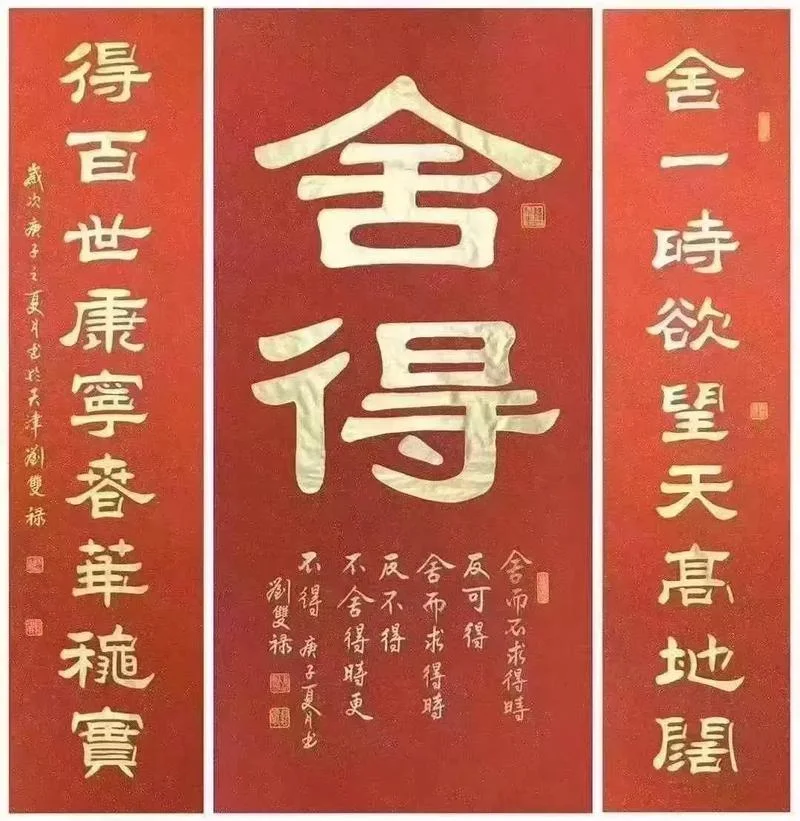 舍一時欲望天髙地闊
舍得
舍而不求得時
反可得
舍而求得時
反不得
不舍得時更
不得 庚子夏月书
劉雙禄
得百世康寧春華穐實
歲次庚子之夏月书於天津劉雙禄